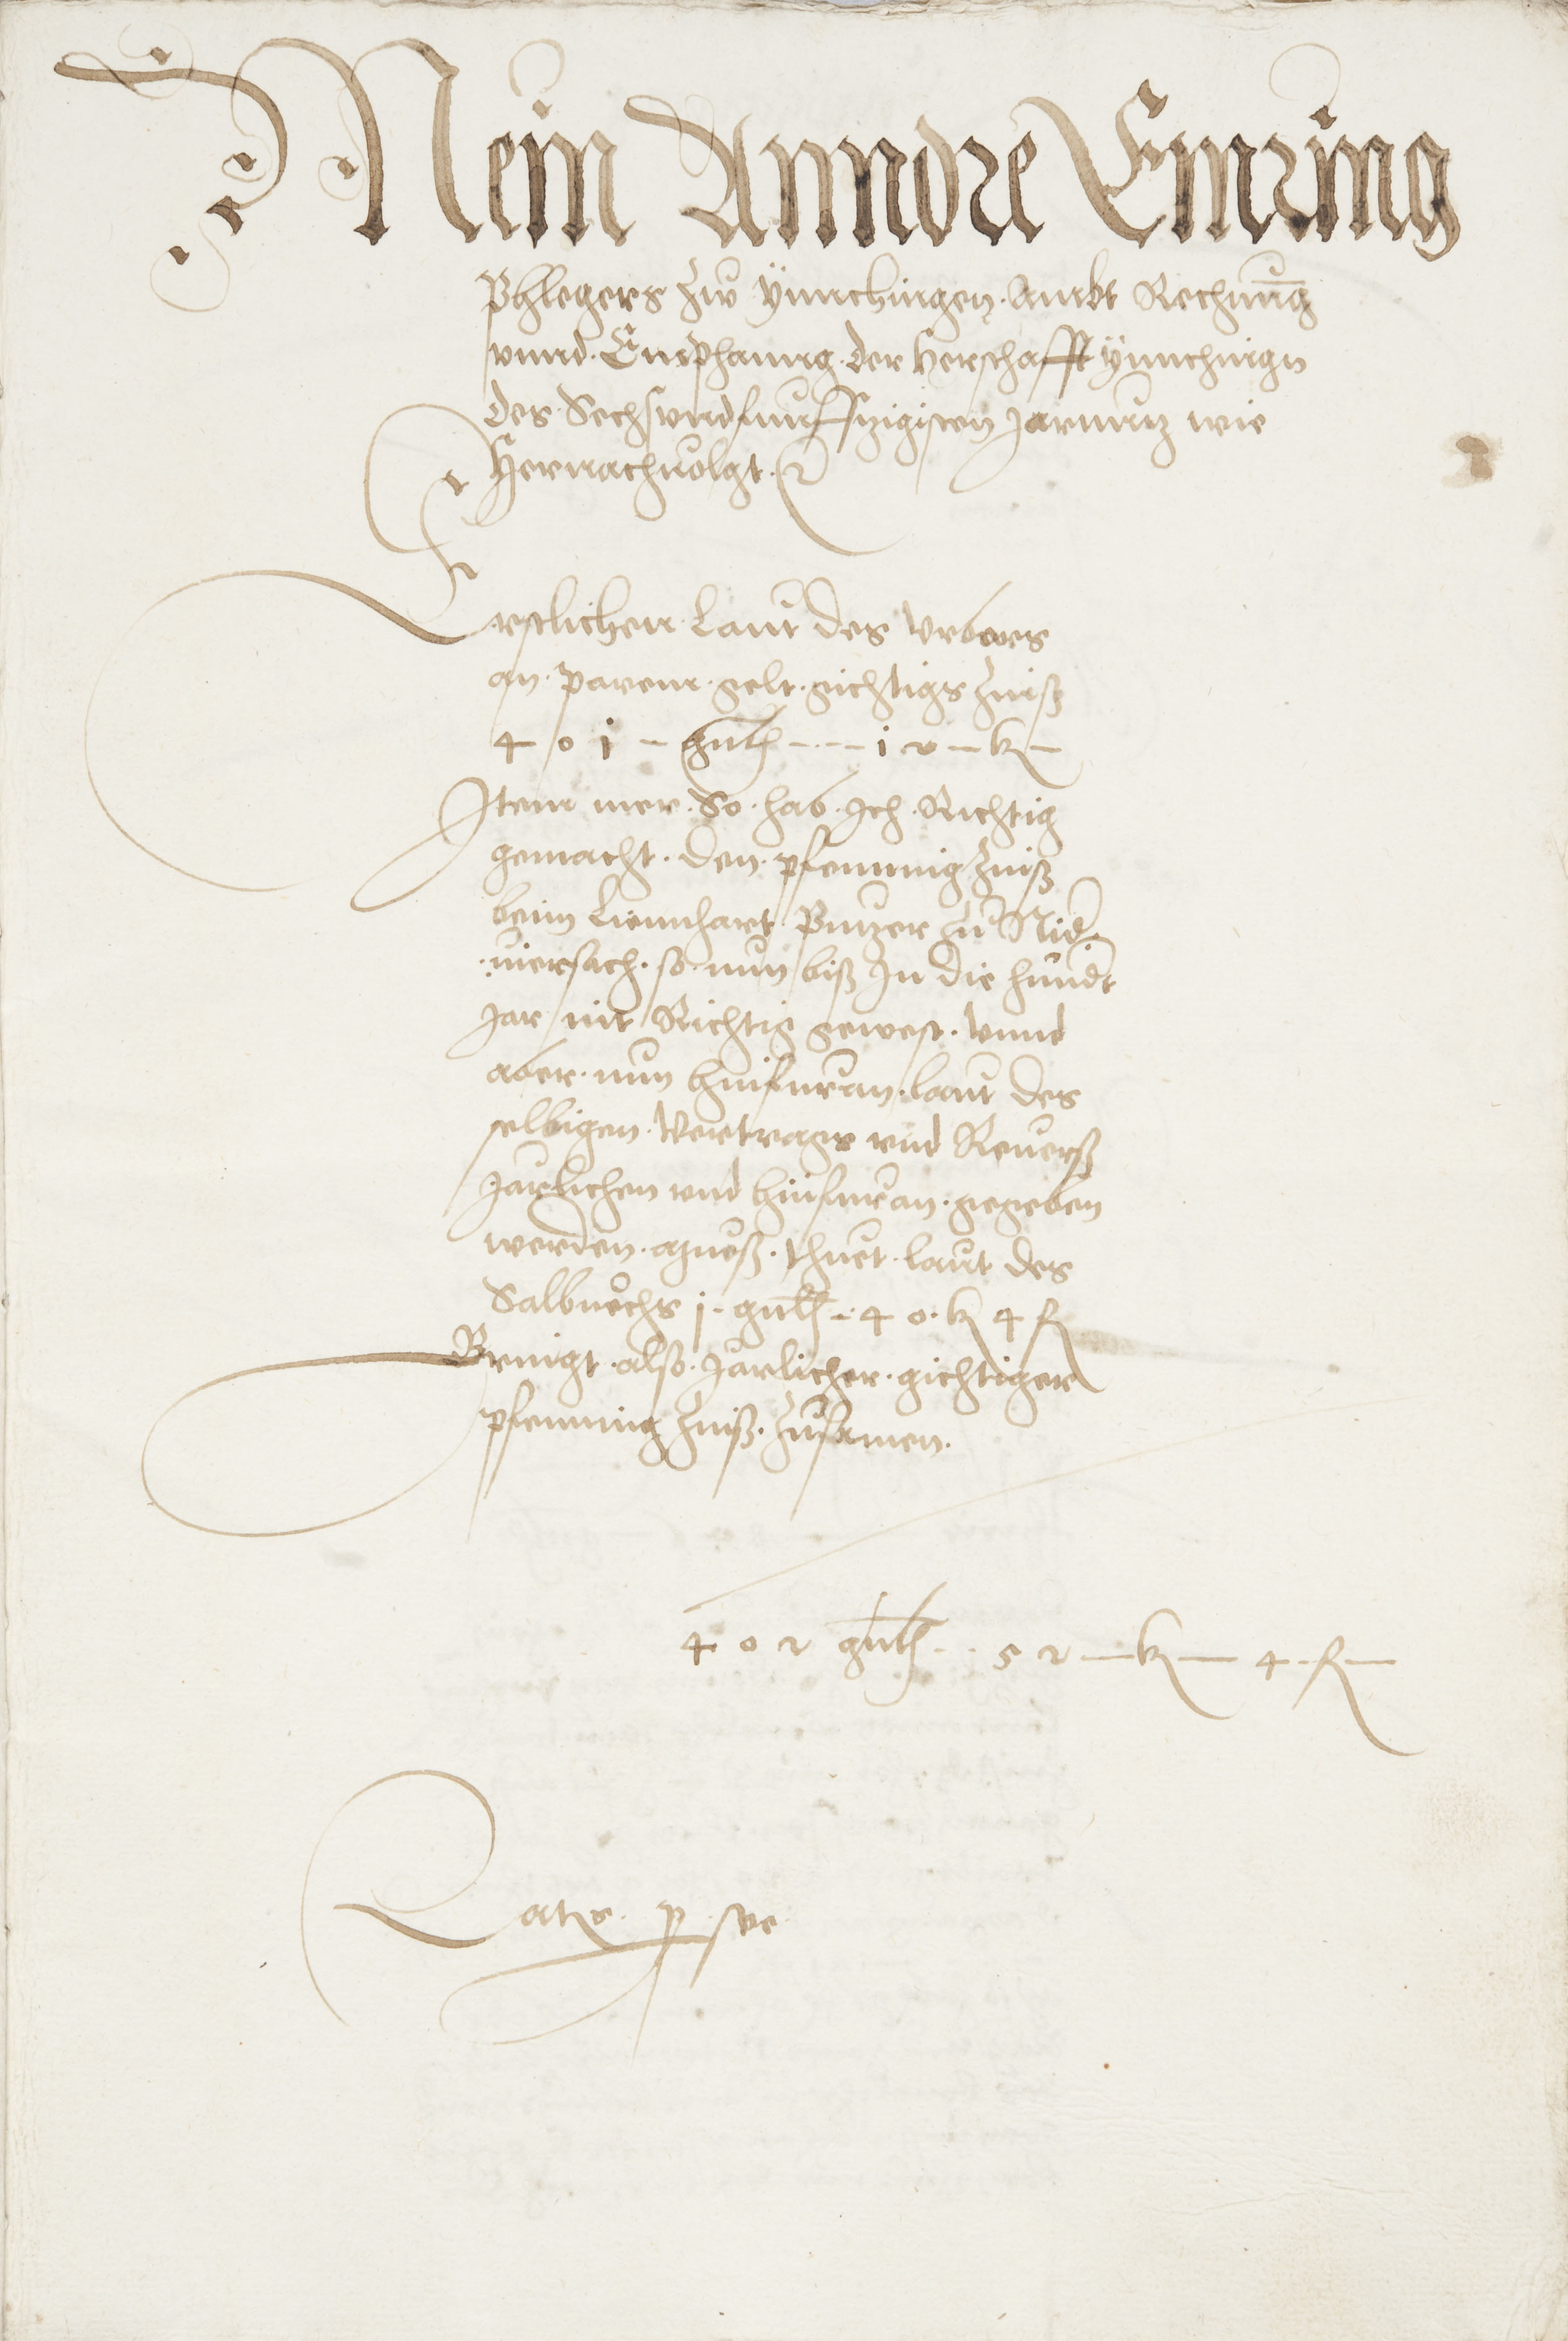 Mein Anndre Einzing
Phlegers zw Ynnchingen Ambt Rechnung
vnnd Emphanng der Herschafft Ynnchingn
des Sechsvndfunffzigisten Jarnutz wie
Hernachuolgt
Erstlichen Laut des Vrbars
an parem gelt gichtigs Zinß
4 0 j guld j 2 k
Item mer So hab Ich Richtig
gemacht den pfenning Zinß
beim Liennhart Pinzer zu Nid
uiersach so nun biß In die hundt
Jar nit Richtig gewest vnnd
aber nun hinfuran laut des
selbigen Vertrags vnd Reuerß
Jarlichen vnd hinfuran gegeben
werden mueß thuet laut des
Salbuechs j guld 4 0 k 4 f
Bringt also Jarlicher gichtiger
pfenning Zinß Zusamen
4 0 2 guld 5 2 k 4 f
Latus p se